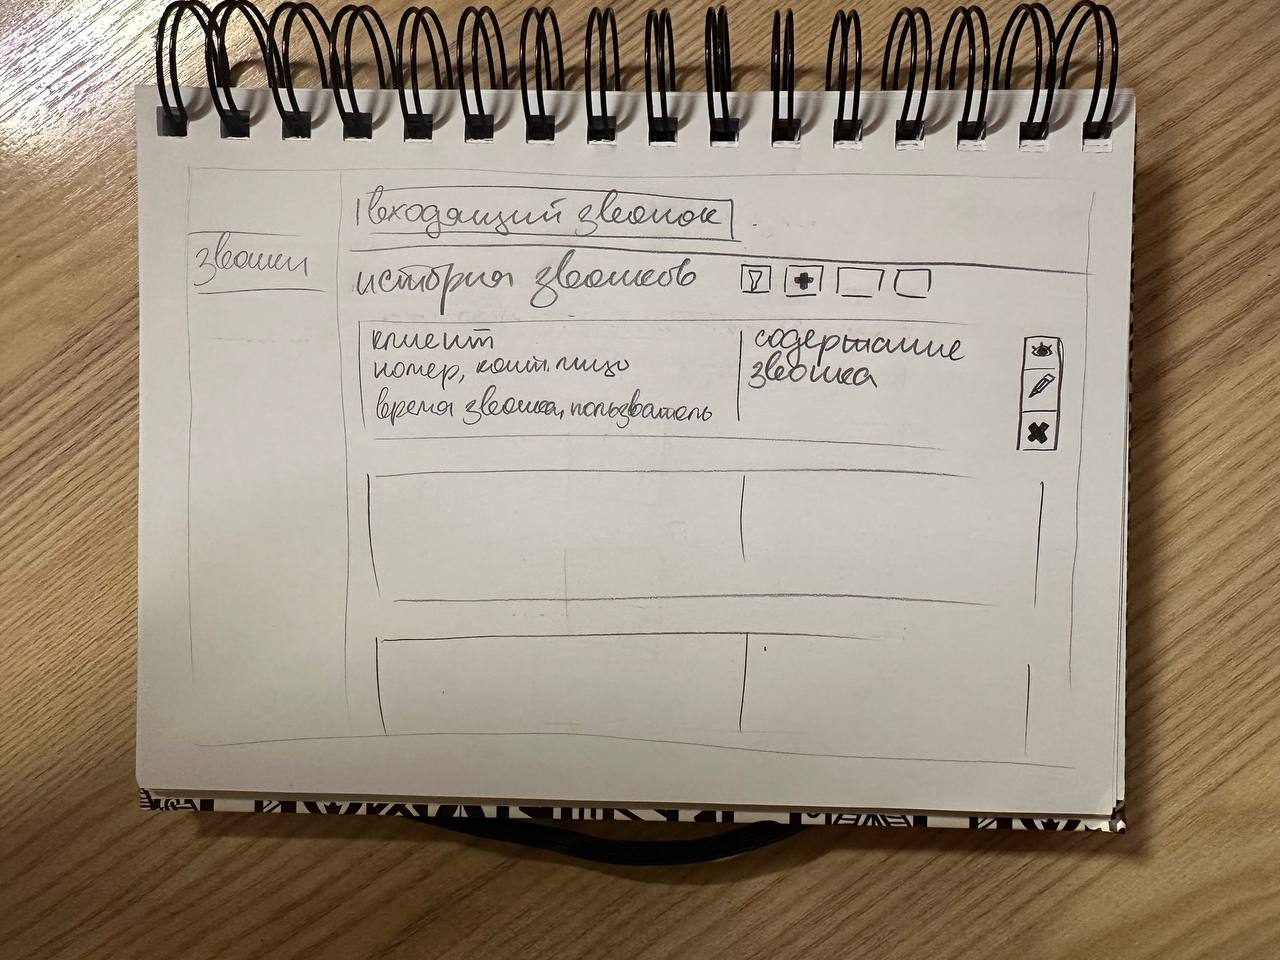 входящий звонок
звонки
история звонков
клиент
номер, конт. лицо
время звонка, пользватель
содержание
звонка